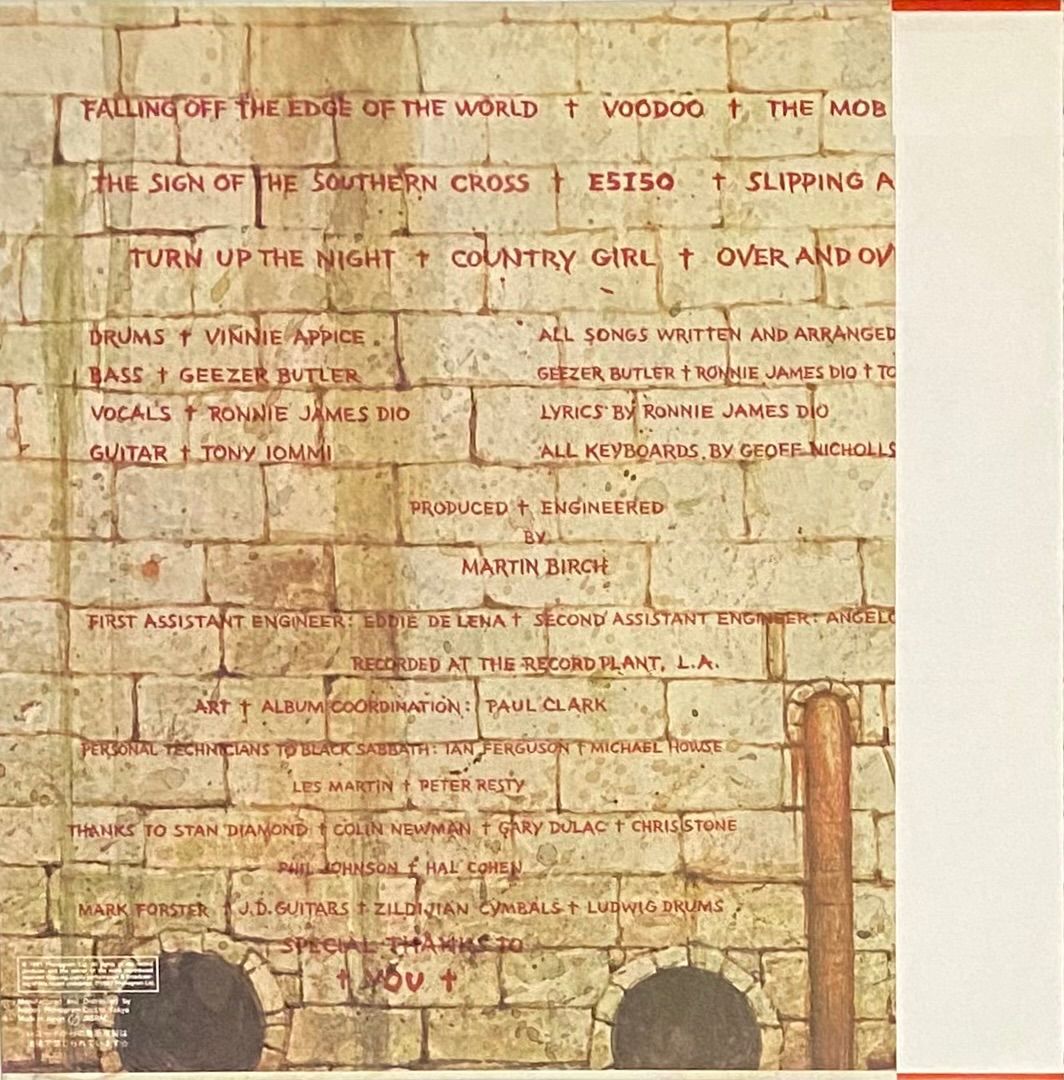 FALLING OFF THE EDGE OF THE WORLD † VOODOO † THE MOB
THE SIGN OF THE SOUTHERN CROSS † E5150 † SLIPPING A
TURN UP THE NIGHT † COUNTRY GIRL † OVER AND OV
DRUMS † VINNIE APPICE
BASS † GEEZER BUTLER
VOCALS † RONNIE JAMES DIO
GUITAR † TONY IOMMI
ALL SONGS WRITTEN AND ARRANGED
GEEZER BUTLER † RONNIE JAMES DIO † TO
LYRICS BY RONNIE JAMES DIO
ALL KEYBOARDS BY GEOFF NICHOLLS
PRODUCED † ENGINEERED
BY
MARTIN BIRCH
FIRST ASSISTANT ENGINEER: EDDIE DE LENA † SECOND ASSISTANT ENGINEER: ANGELO
RECORDED AT THE RECORD PLANT, L.A.
ART † ALBUM COORDINATION: PAUL CLARK
PERSONAL TECHNICIANS TO BLACK SABBATH: IAN FERGUSON † MICHAEL HOWSE
LES MARTIN † PETER RESTY
THANKS TO STAN DIAMOND † COLIN NEWMAN † GARY DULAC † CHRIS STONE
PHIL JOHNSON † HAL COHEN
MARK FORSTER † J.D. GUITARS † ZILDIJIAN CYMBALS † LUDWIG DRUMS
SPECIAL THANKS TO
† YOU †
Manufactured and Distributed by
Nippon Phonogram Co., Ltd. Tokyo
Made in Japan